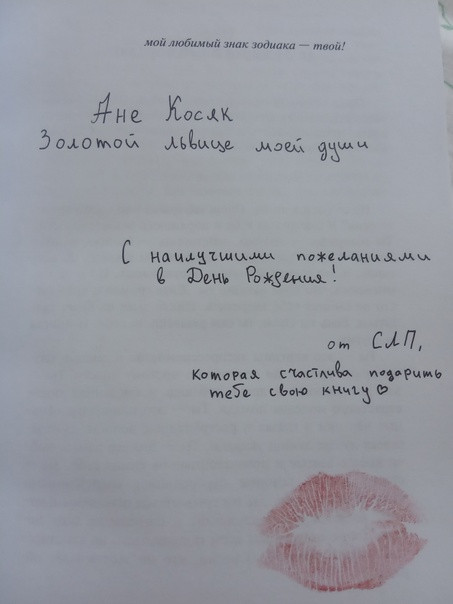 мой любимый знак зодиака — твой!
Ане Косяк
Золотой львице моей души
С наилучшими пожеланиями
в День Рождения!
от СЛП,
которая счастлива подарить
тебе свою книгу♡